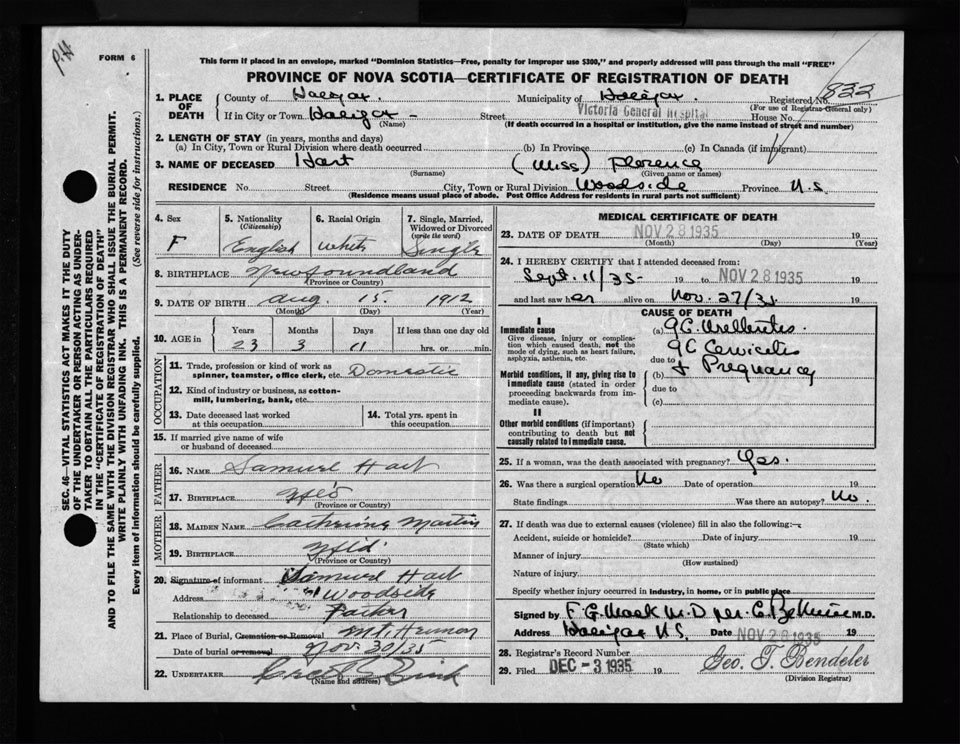 P.H
FORM 6
This form if placed in an envelope, marked "Dominion Statistics—Free, penalty for improper use $300," and properly addressed will pass through the mail "FREE"
PROVINCE OF NOVA SCOTIA—CERTIFICATE OF REGISTRATION OF DEATH
822
SEC. 46—VITAL STATISTICS ACT MAKES IT THE DUTY
OF THE UNDERTAKER OR PERSON ACTING AS UNDER-
TAKER TO OBTAIN ALL THE PARTICULARS REQUIRED
IN THE "CERTIFICATE OF REGISTRATION OF DEATH"
AND TO FILE THE SAME WITH THE DIVISION REGISTRAR WHO SHALL ISSUE THE BURIAL PERMIT.
WRITE PLAINLY WITH UNFADING INK. THIS IS A PERMANENT RECORD.
Every item of Information should be carefully supplied. (See reverse side for instructions.)
1. PLACE OF DEATH
County of Halifax. Municipality of Halifax. Registered No.
(For use of Registrar-General only)
If in City or Town Halifax Street Victoria General Hospital House No.
(Name)
(If death occurred in a hospital or institution, give the name instead of street and number)
2. LENGTH OF STAY (in years, months and days)
(a) In City, Town or Rural Division where death occurred (b) In Province (c) In Canada (if immigrant)
3. NAME OF DECEASED Hart (Miss) Florence
(Surname) (Given name or names)
RESIDENCE No. Street City, Town or Rural Division Woodside Province N.S.
(Residence means usual place of abode. Post Office Address for residents in rural parts not sufficient)
4. Sex
F
5. Nationality
(Citizenship)
English
6. Racial Origin
White
7. Single, Married,
Widowed or Divorced
(write the word)
Single
8. BIRTHPLACE Newfoundland
(Province or Country)
9. DATE OF BIRTH Aug. 15. 1912
(Month) (Day) (Year)
10. AGE in
Years Months Days If less than one day old
23 3 11 hrs. or min.
OCCUPATION
11. Trade, profession or kind of work as
spinner, teamster, office clerk, etc. Domestic
12. Kind of industry or business, as cotton-
mill, lumbering, bank, etc.
13. Date deceased last worked
at this occupation
14. Total yrs. spent in
this occupation
15. If married give name of wife
or husband of deceased
FATHER
16. NAME Samuel Hart
17. BIRTHPLACE
(Province or Country)
MOTHER
18. MAIDEN NAME Catherine Martin
19. BIRTHPLACE Nfld
(Province or Country)
20. Signature of informant Samuel Hart
Address Woodside
Relationship to deceased Father
21. Place of Burial, Cremation or Removal Mt. Hermon
Date of burial or removal Nov. 30/35
22. UNDERTAKER
(Name and address)
MEDICAL CERTIFICATE OF DEATH
23. DATE OF DEATH NOV 28 1935 19
(Month) (Day) (Year)
24. I HEREBY CERTIFY that I attended deceased from:
Sept. 11/35 19 to NOV 28 1935 19
and last saw her alive on Nov. 27/35 19
CAUSE OF DEATH
I
Immediate cause
Give disease, injury or complica-
tion which caused death, not the
mode of dying, such as heart failure,
asphyxia, asthenia, etc.
(a) G.C.
G C Cervicitis
due to
Morbid conditions, if any, giving rise to
immediate cause (stated in order
proceeding backwards from im-
mediate cause).
(b) + Pregnancy
due to
(c)
II
Other morbid conditions (if important)
contributing to death but not
causally related to immediate cause.
25. If a woman, was the death associated with pregnancy? Yes.
26. Was there a surgical operation No Date of operation 19
State findings Was there an autopsy? No.
27. If death was due to external causes (violence) fill in also the following:—
Accident, suicide or homicide? Date of injury 19
(State which)
Manner of injury
(How sustained)
Nature of injury
Specify whether injury occurred in industry, in home, or in public place
Signed by F. G. Mack M.D per C. M.D.
Address Halifax N.S. Date NOV 28 1935 19
28. Registrar's Record Number
29. Filed DEC - 3 1935 19 Geo. T. Bendeler
(Division Registrar)